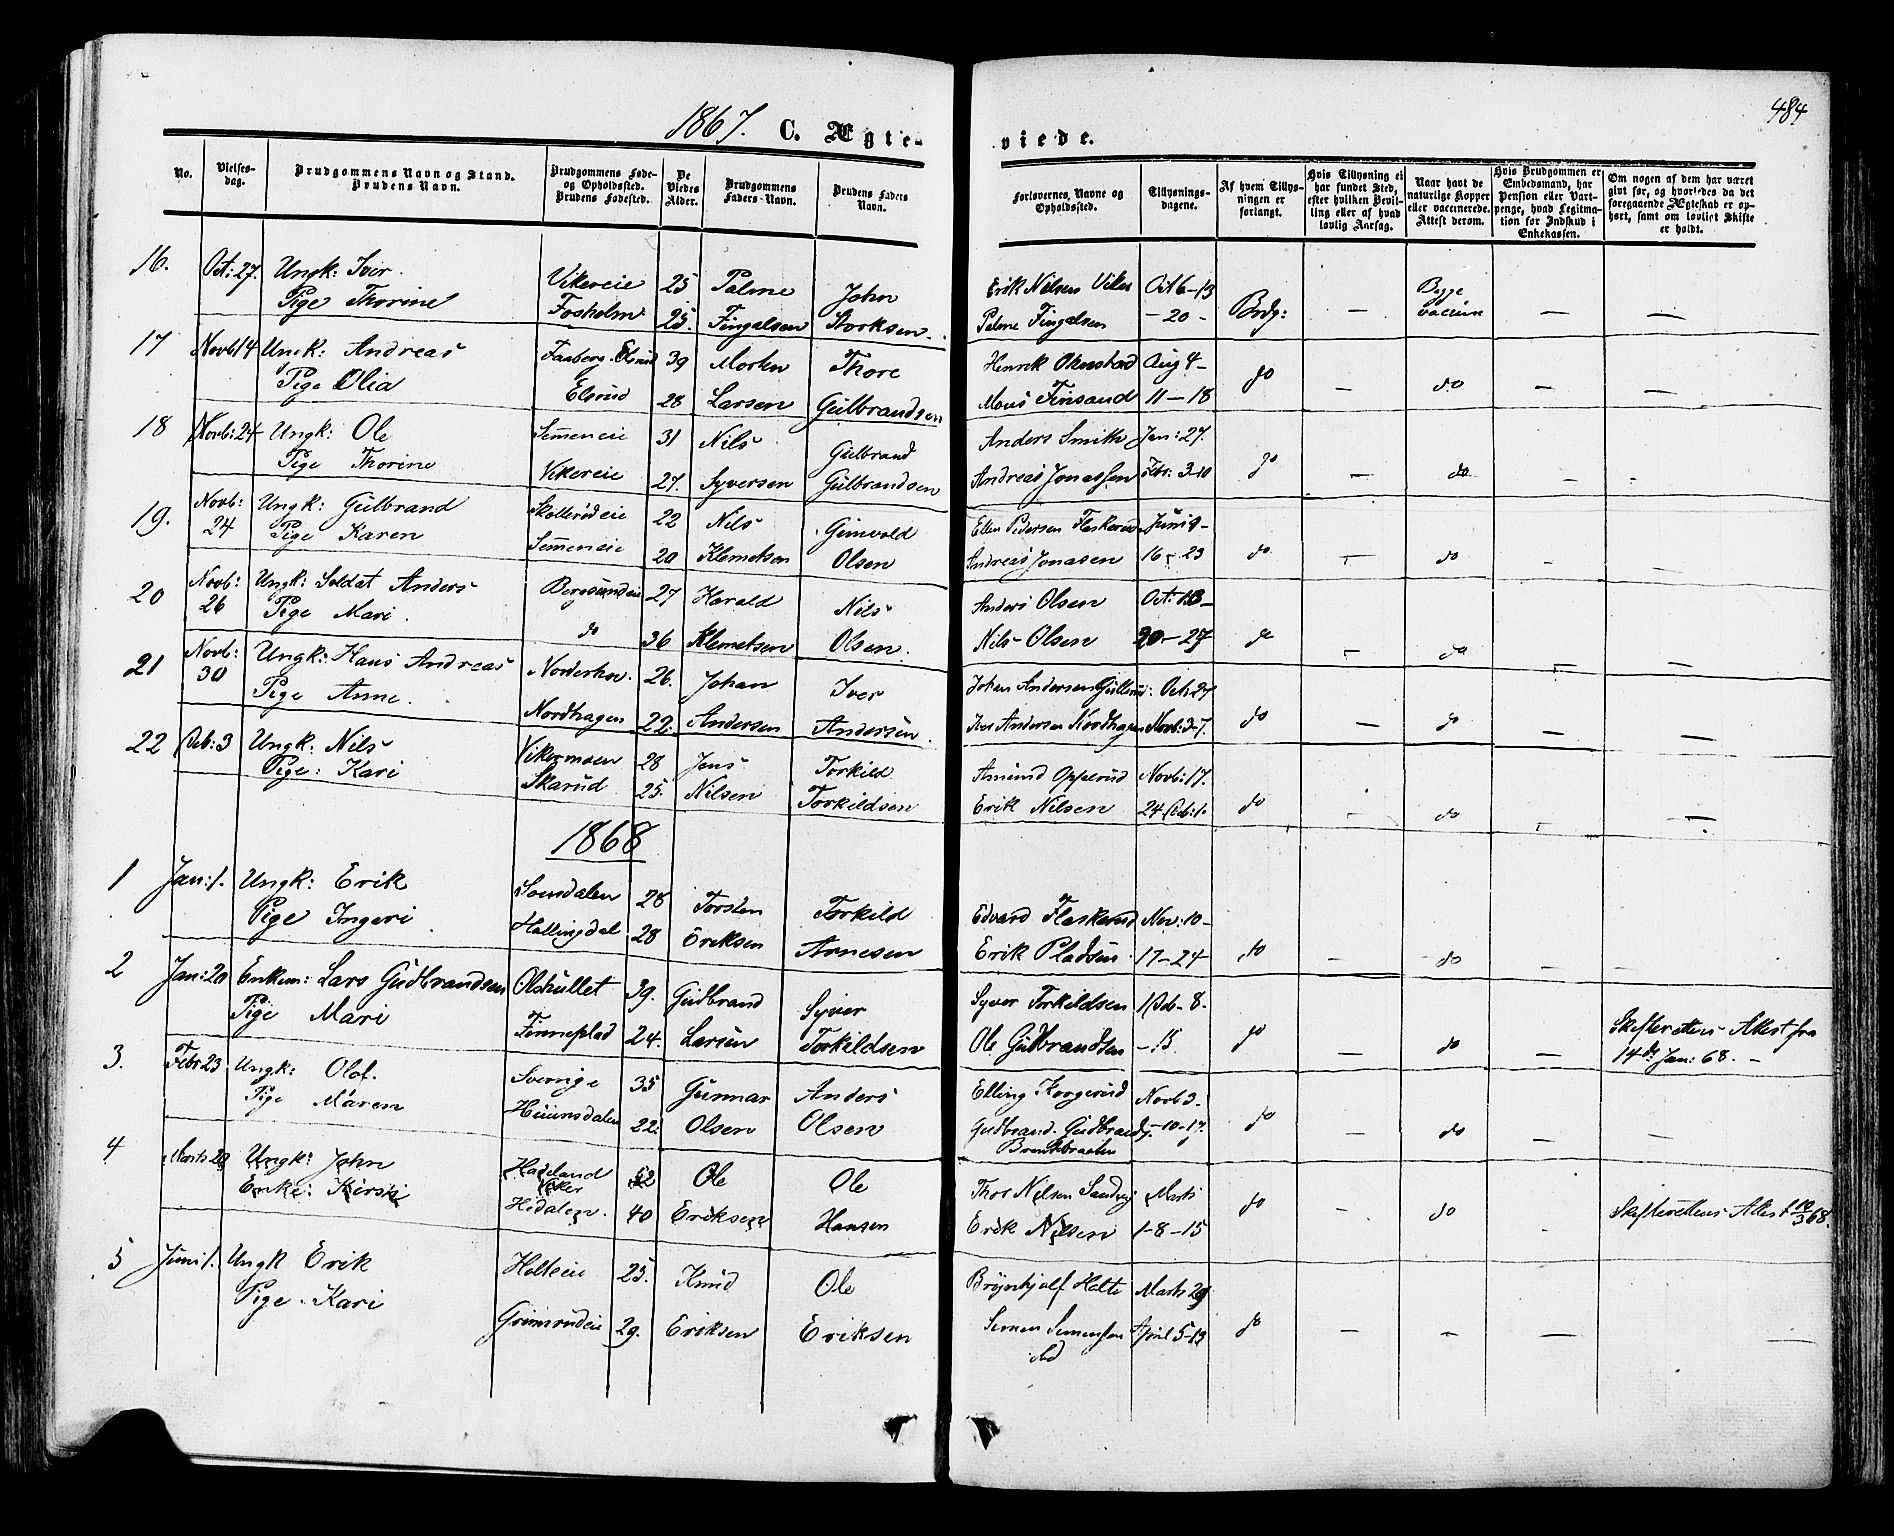 484
1867. C. Ægteviede.
No. Vielsesdag. Brudgommens Navn og Stand. Brudens Navn. Brudgommens Føde- og Opholdssted. Brudens Fødested. De Viedes Alder. Brudgommens Faders Navn. Brudens Faders Navn. Forlovernes Navne og Opholdssted. Tillysningsdagene. Af hvem Tillysningen er forlangt. Hvis Tillysning ei har fundet Sted, efter hvilken Bevilling eller af hvad lovlig Aarsag. Naar havt de naturlige Kopper eller vaccinerede. Attest derom. Hvis Brudgommen er Embedsmand, har Pension eller Vartpenge, hvad Legitimation for Indskud i Enkekassen. Om nogen af dem har været givt før, og hvorledes da det foregaaende Ægteskab er ophørt, samt om lovligt Skifte er holdt.
16. Oct: 27. Ungk: Iver Vikereie 25 Palme John Erik Nilsen Viker Oct 6-13 Brdg: — Begge vaccin — —
Pige Thorine Fosholm 25. Fingalsen Storksen. Palme Fingalsen -20-
17 Novb 14 Ungk: Andreas Faaberg. Elsrud 39 Morten Thore Henrik Oknstad Aug 4- do — do — —
Pige Olia Elsrud 28 Larsen Gulbrandsen Mons Finsand 11-18
18 Novb: 24 Ungk: Ole Semmeneie 31 Nils Gulbrand Anders Smith Jan: 27. do — do — —
Pige Thorine Vikereie 27. Syversen Gulbrandsen Andreas Jonassen Febr: 3-10
19. Novb: 24 Ungk: Gulbrand 22 Nils Grimvold Ellen Pedersen Flaskerud Juni 9- do — do — —
Pige Karen Semmeneie 20 Klemetsen Olsen Andreas Jonasen 16-23
20 Novb: 26 Ungk: Soldat Anders Bergsundeie 27 Harald Nils Anders Olsen Oct: 13- do — do — —
Pige Mari. do 36 Klemetsen Olsen. Nils Olsen 20-27
21 Novb: 30 Ungk: Hans Andreas Norderhov. 26. Johan Iver Johan Andersen Oct 27 do — do — —
Pige Anne. Nordhagen 22. Andersen Andersen. Iver Andersen Nordhagen Novb: 3-7.
22 Deb: 3 Ungk: Nils Vikermoen 28 Jens Torkild Amund Opperud Novb: 17. do — do — —
Pige: Kari Skarud 25. Nilsen Torkildsen Erik Nilsen 24 Deb: 1.
1868
1 Jan: 1. Ungk: Erik 28 Torsten Torkild Edvard Flaskerud Nov: 10- do — do — —
Pige Ingeri Hallingdal 28 Eriksen Arnesen Erik Pladsen 17-24
2 Jan: 20 Enkem: Lars Gudbrandsen Olshullet 39. Gudbrand Syver Syver Torkildsen 1 Deb-8. do — do — Skifterettens Attest fra
Pige Mari Finneplad 24. Larsen Torkildsen Ole Gudbrandsen -15 14de Jan: 68. -
3. Febr 23 Ungk: Olof. Sverrige 35 Gunnar Anders Elling Korgerud Novb 3. do — do — —
Pige Maren 22. Olsen Olsen Gudbrand. Gudbrands. -10-17.
4 Marts 20 Ungk: John Hadeland 52 Ole Ole Thor Nilsen Sandvig Marts do — do — Skifterettens Attest 68.
Enke: Kirsti Hedalen. 40 Eriksen Hansen Erik Nilsen 1-8-15
5 Juni 1. Ungk Erik Holteie 25. Knud Ole Brynhjolf Holte Marts 29 do — — — —
Pige. Kari Grimsrudeie 29. Eriksen Eriksen April 5-19